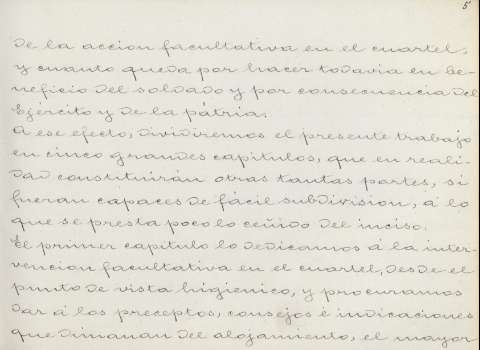 5
de la accion facultativa en el cuartel;
y cuanto queda por hacer todavia en be-
neficio del soldado y por consecuencia del
Ejército y de la pátria.
A ese efecto, dividiremos el presente trabajo
en cinco grandes capitulos, que en reali-
dad constituirán otras tantas partes, si
fueran capaces de fácil subdivision, á lo
que se presta poco lo ceñido del inciso.
El primer capitulo lo dedicamos á la inter-
vencion facultativa en el cuartel, desde el
punto de vista higienico, y procuramos
dar á los preceptos, consejos é indicaciones
que dimanan del alojamiento, el mayor